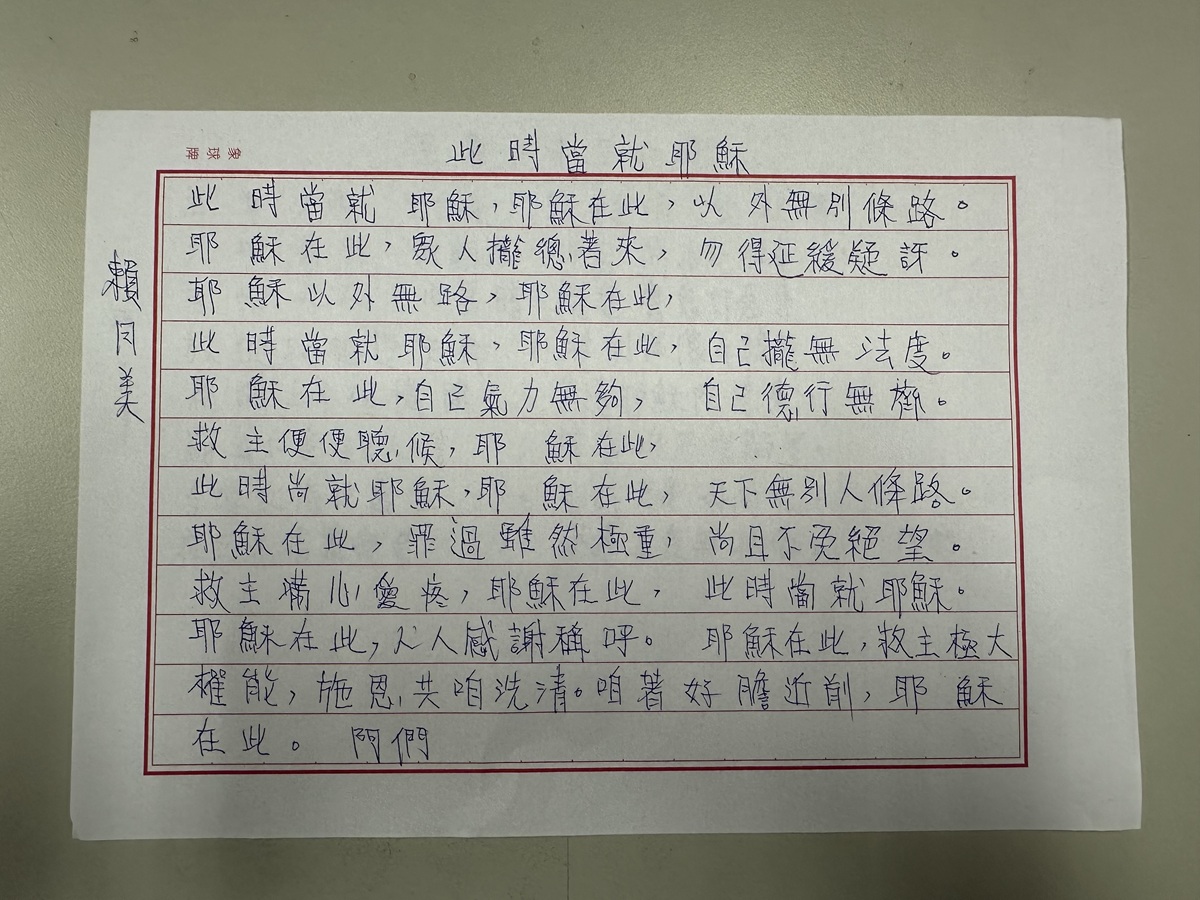 象球牌
此時當就耶穌
賴月美
此時當就耶穌，耶穌在此，以外無別條路。
耶穌在此，眾人攏總著來，勿得延緩疑訝。
耶穌以外無路，耶穌在此，
此時當就耶穌，耶穌在此，自己攏無法度。
耶穌在此，自己氣力無夠，自己德行無齊。
救主便便聽候，耶穌在此，
此時尚就耶穌，耶穌在此，天下無別人條路。
耶穌在此，罪過雖然極重，尚且不免絕望。
救主滿心愛疼，耶穌在此，此時當就耶穌。
耶穌在此，人人感謝稱呼。耶穌在此，救主極大
權能，施恩共咱洗清。咱著好膽近前，耶穌
在此。阿們